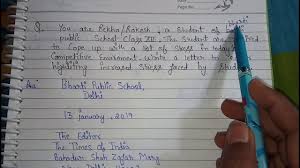 Q. You are Rekha/Rakesh, a student of
public School Class XII. The Student are
to Cope up with a lot of stress in today's
Competitive Environment. Write a letter to
highlighting increased stress faced by Students
Ans: Bharti Public School,
Delhi
13 January, 2019
The Editor
The Times of India
Bahadur Shah Zafar Marg